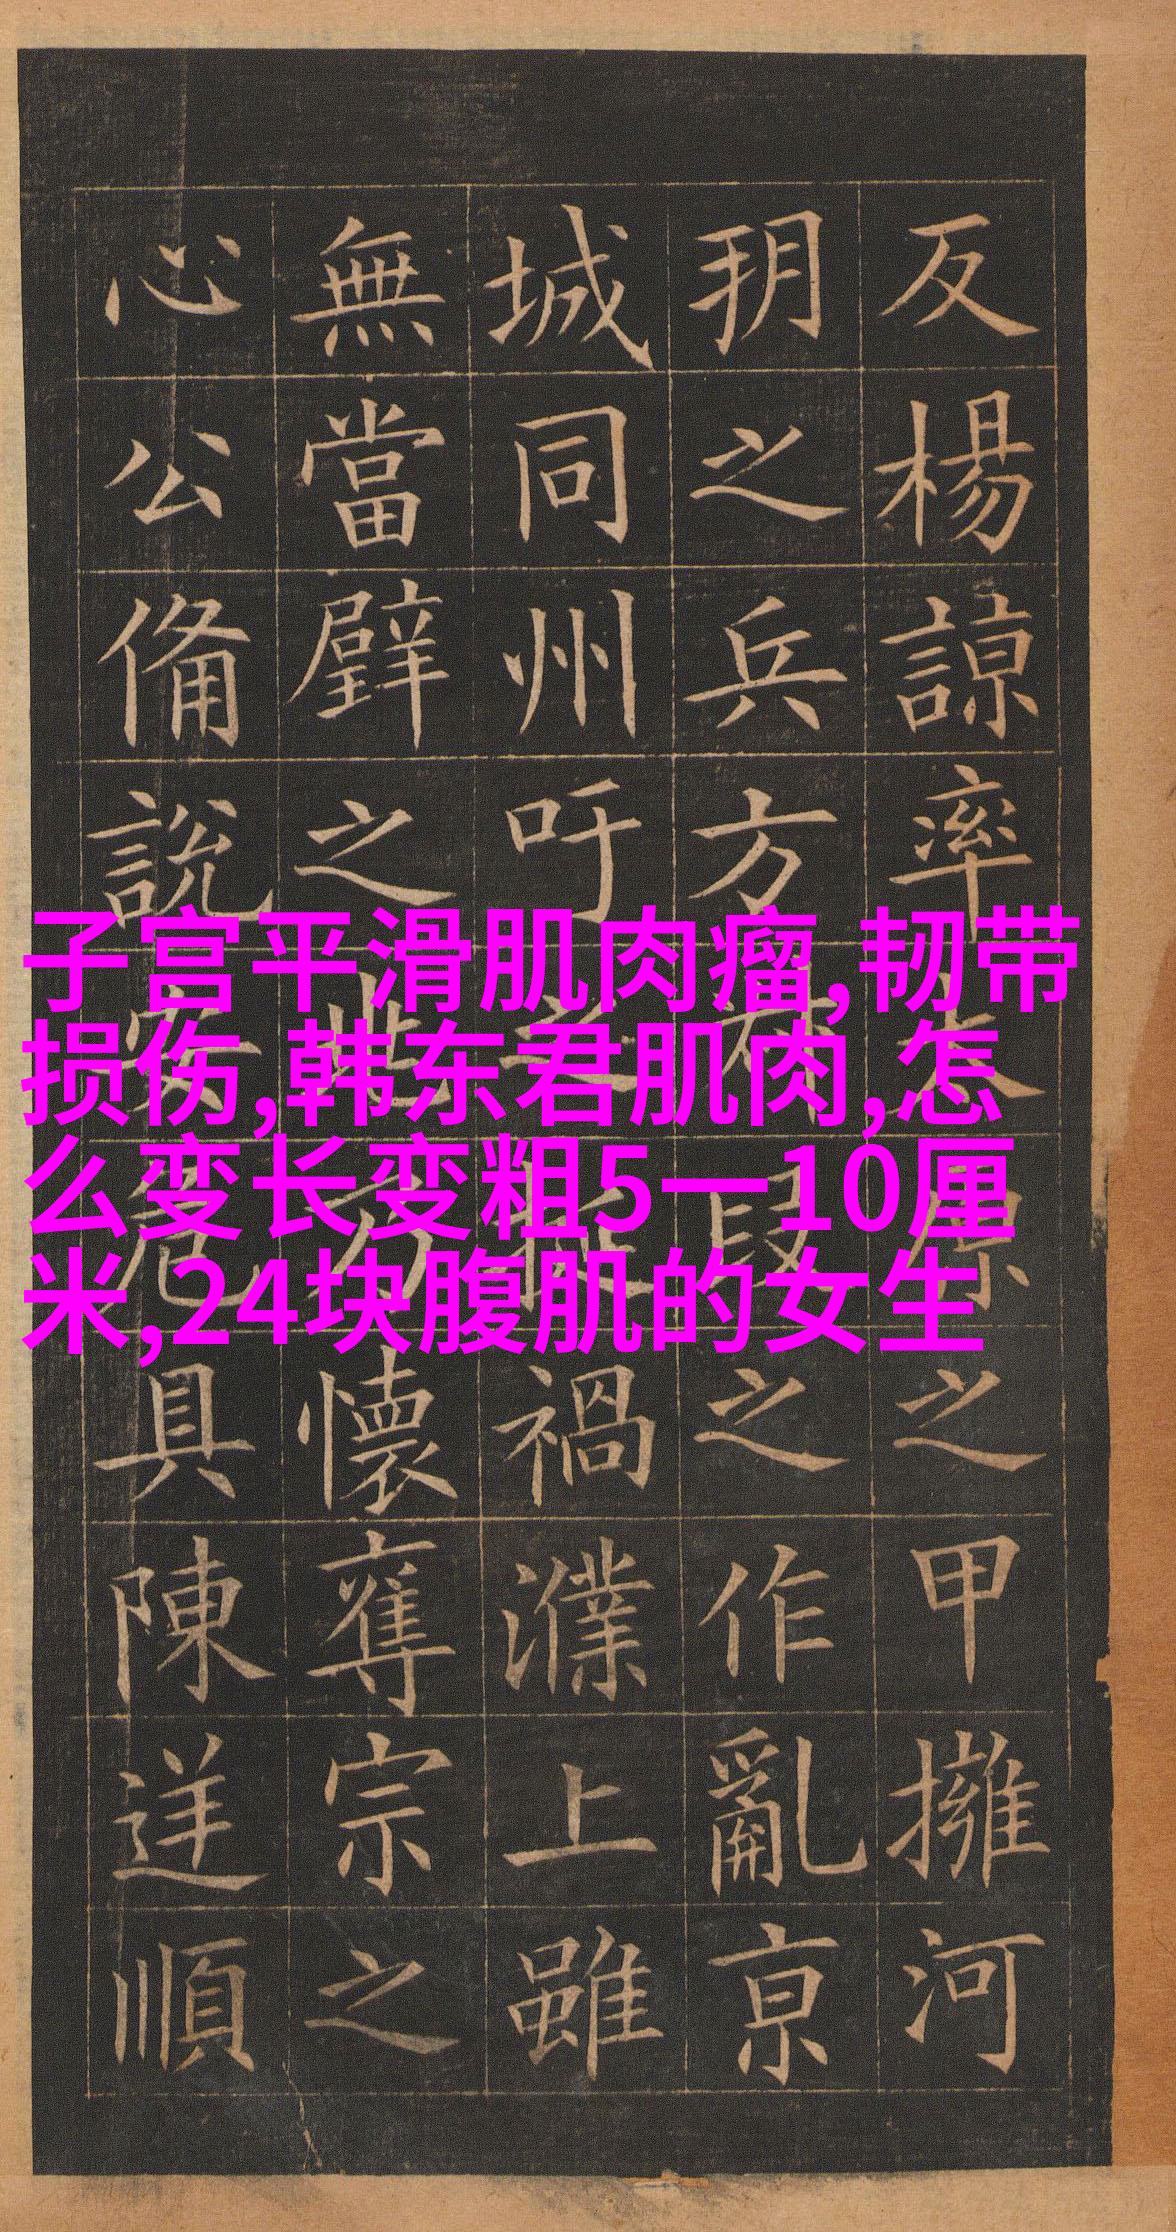 反楊諒率太原之甲擁河
玥之兵方叔段之作亂京
城同州吁之挻禍濮上雖
無當璧之兆乃懷奪宗之
心公備說安危具陳逆順
子宫平滑肌肉瘤,韧带
损伤,韩东君肌肉,怎
么变长变粗5一10厘
米,24块腹肌的女生